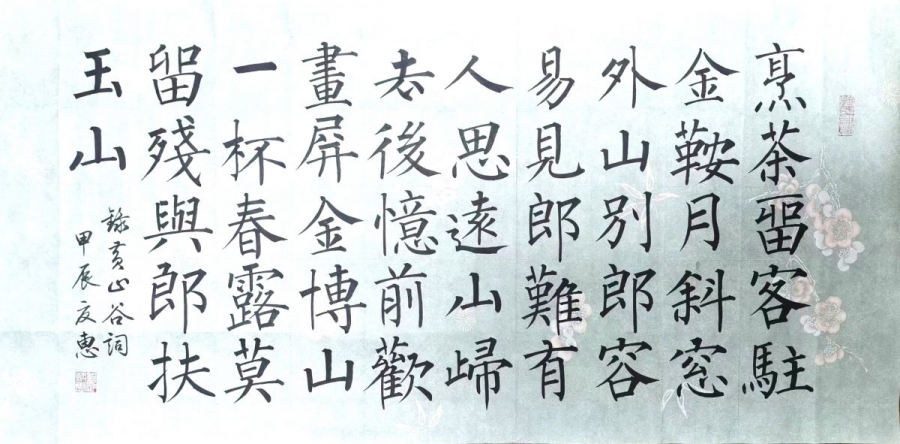 烹茶畱客駐
金鞍月斜窓
外山別郎容
易見郎難有
人思遠山㱕
去後憶前歡
畫屏金博山
一杯春露莫
留殘與郎扶
玉山
錄黃山谷詞
甲辰友惠